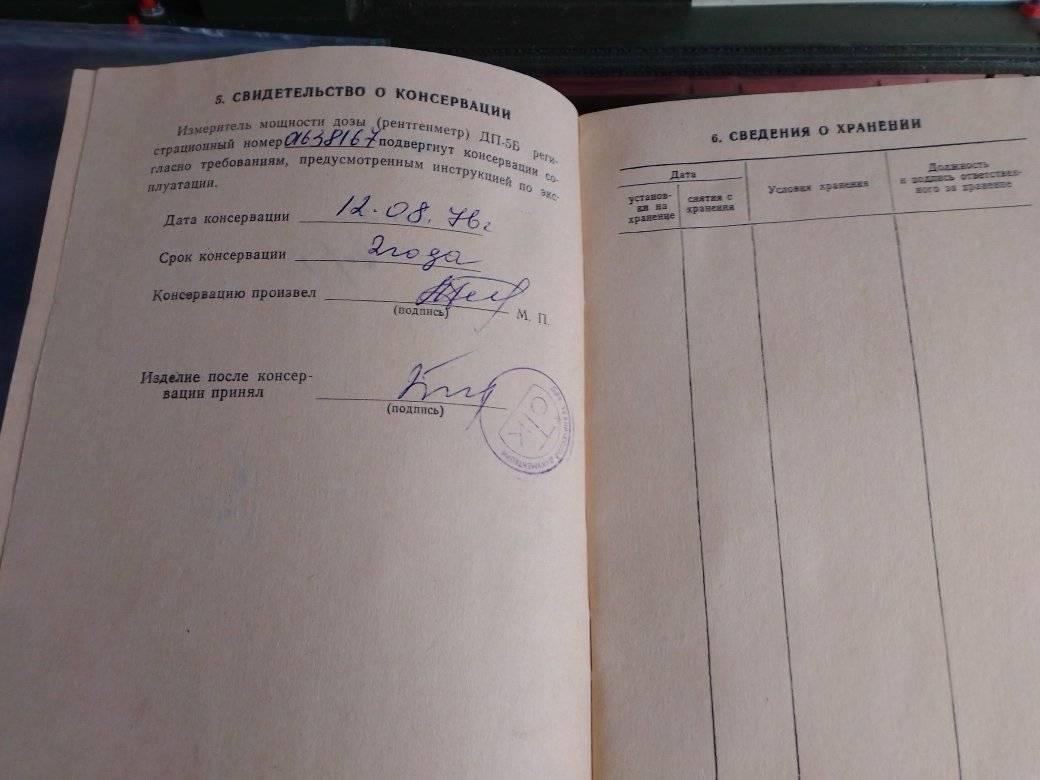 5. СВИДЕТЕЛЬСТВО О КОНСЕРВАЦИИ
Измеритель мощности дозы (рентгенметр) ДП-5Б реги-
страционный номер 01638167 подвергнут консервации со-
гласно требованиям, предусмотренным инструкцией по экс-
плуатации.
Дата консервации 12.08.76г
Срок консервации 2года
Консервацию произвел
(подпись) М. П.
Изделие после консер-
вации принял
(подпись)
ОТК
6. СВЕДЕНИЯ О ХРАНЕНИИ
Дата
установ-
ки на
хранение
снятия с
хранения
Условия хранения
Должность
и подпись ответствен-
ного за хранение